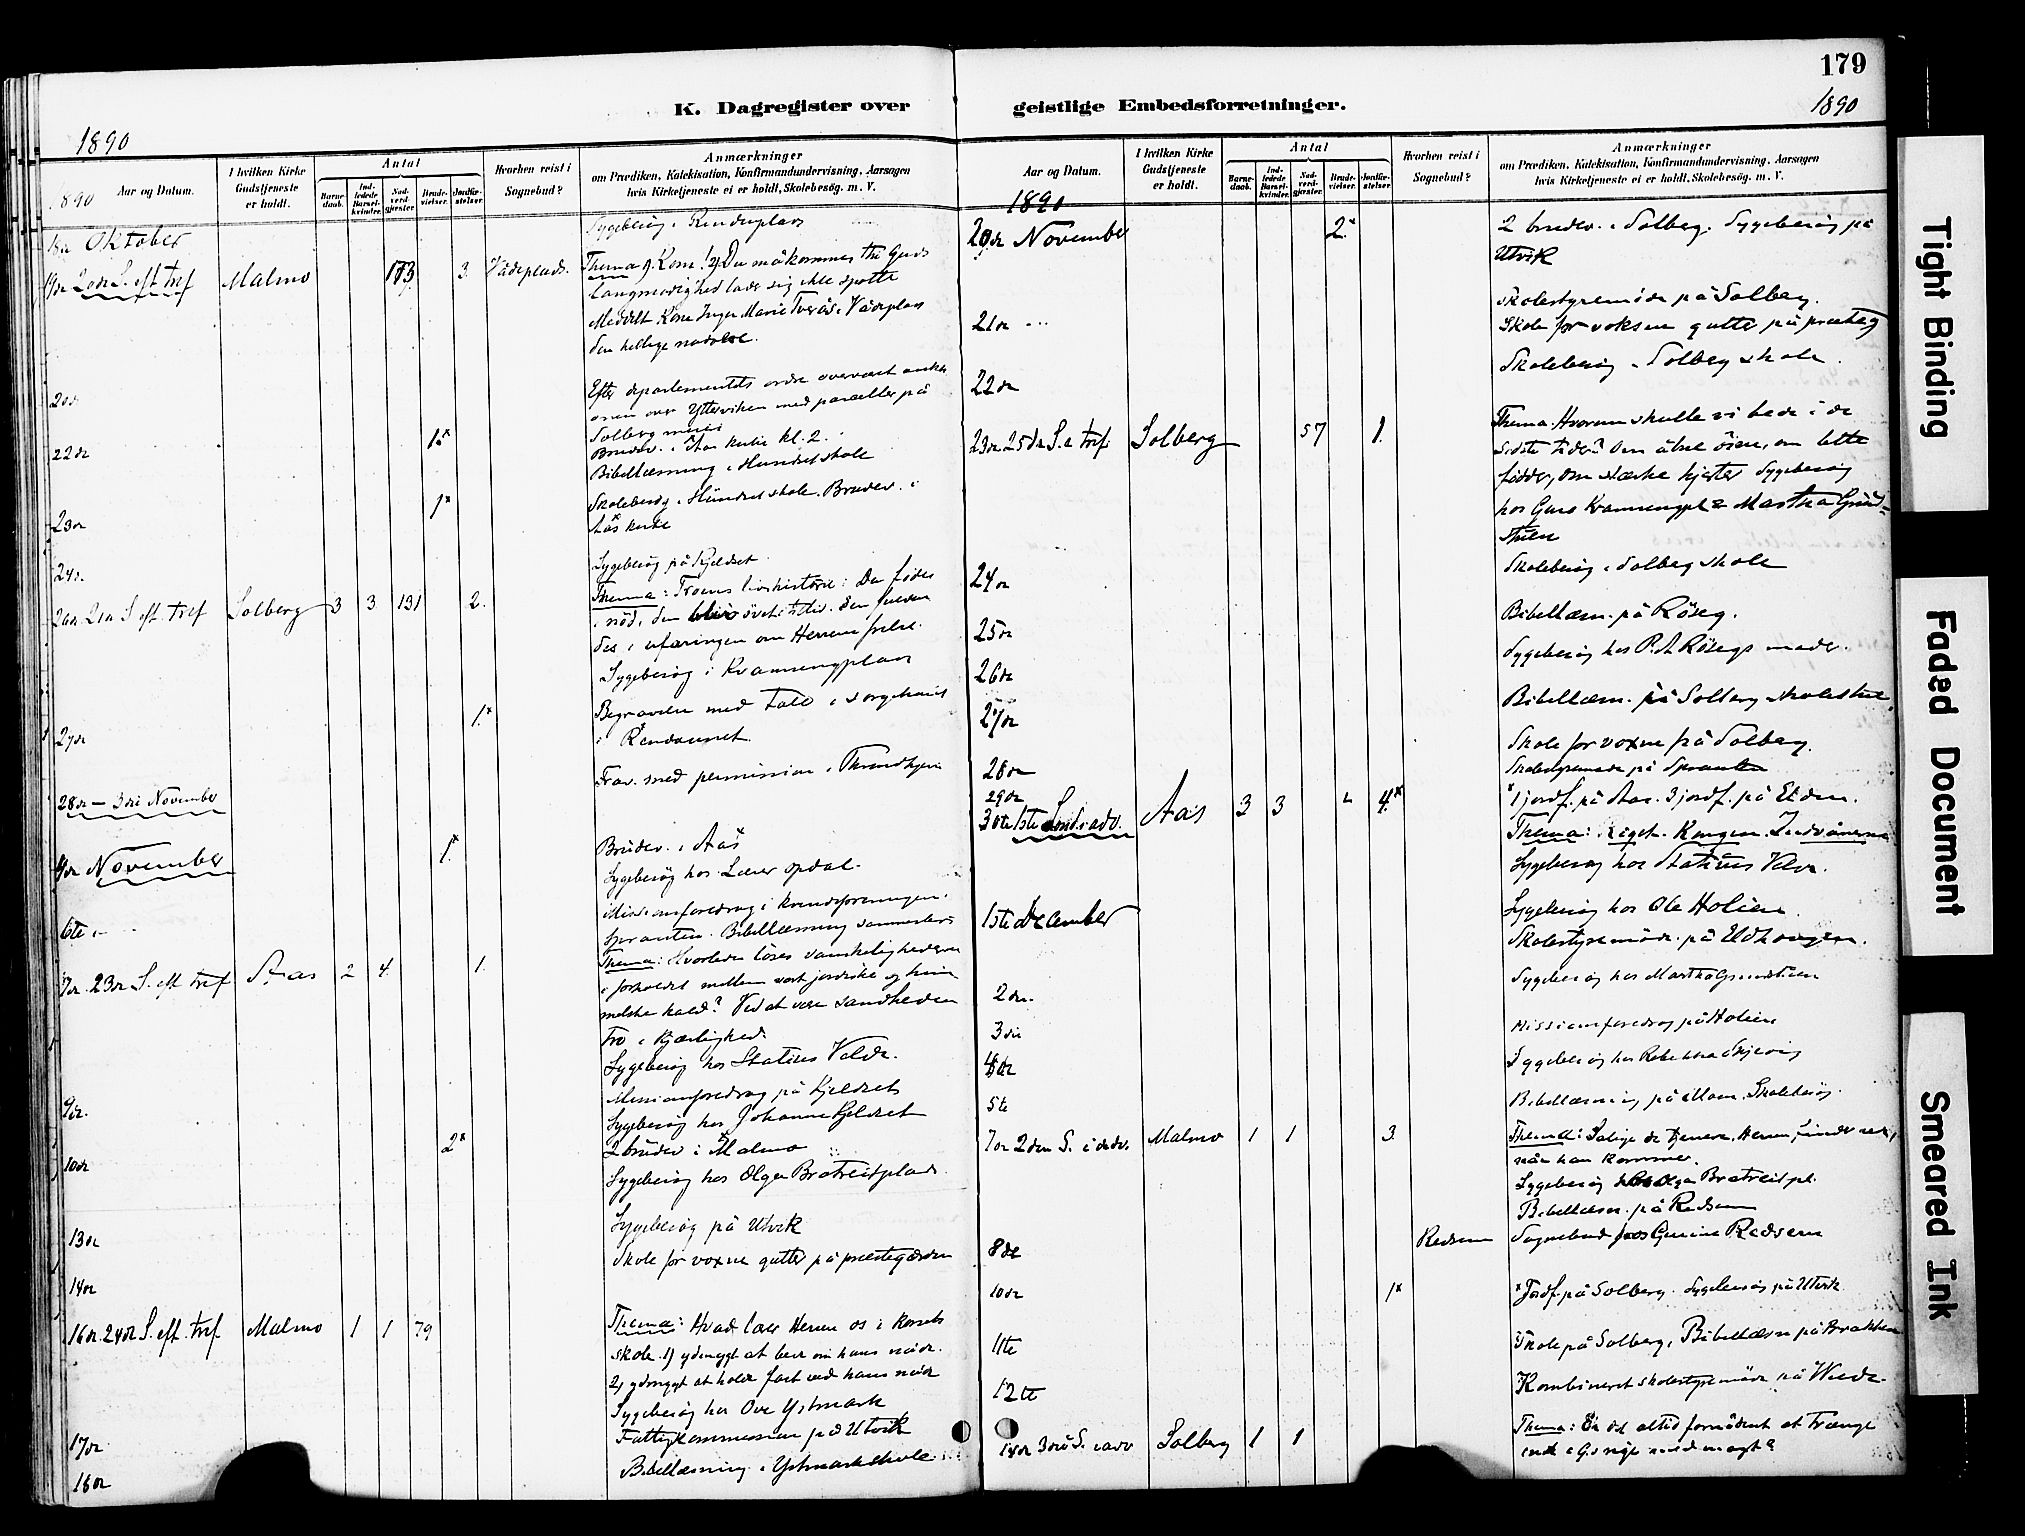 179
K. Dagregister over geistlige Embedsforretninger.
1890
1890
Aar og Datum.
I hvilken Kirke Gudstjeneste er holdt.
Antal
Barnedaab.
Indledede Barselkvinder.
Nadverdgjæster.
Brudevielser.
Jordfæstelser.
Hvorhen reist i Sognebud?
Anmærkninger
om Prædiken, Katekisation, Konfirmandundervisning, Aarsagen
hvis Kirketjeneste ei er holdt, Skolebesøg. m. V.
1890
18de Oktober
Sygebesøg i
19de 20de S. eft. tref Malmo 173 3. Vådeplads.
Thema 1) Kom! 2) Du må komme, thi Guds
langmodighed lader sig ikke spotte
Meddelt Kone Inger Marie Tverås i Vådeplads
den hellige nadvere.
20de
Efter departementets ordre overvært
over Yttervikens med parceller på
Solberg
22de 1.x
Brudev. i Aas kirke kl. 2.
Bibellæsning i Hundset skole
23de 1x
Skolebesøg i Hundset skole. Brudev. i
Aås kirke
24de
Sygebesøg på Kjeldset
26de 21de S. eft. tref Solberg 3 3 131 2.
Thema: Troens livshistorie: Den fødes
i nød, den bliver øvet i
des i erfaringen om Herrens frelse.
Sygebesøg i Kvamsengplads
27de 1.x
Begravelse med Tale i sørgehuset
i
28de – 3die November
Frav. med permission i Throndhjem
4de November 1.x
Brudev. i Aås
Sygebesøg hos Lærer Opdal.
6te
Missionsforedrag i kvindeforeningen.
Spranten. Bibellæsning sammesteds
7de. 23de S. eft. tref Aas 2 4. 1.
Thema: Hvorledes løses vanskelighederne
i forholdet mellem vort jordiske og himmelske
kald? Ved at være sandheden
tro i Kjærlighed.
Sygebesøg hos Statius Velde.
Missionsforedrag på Kjeldset
9de.
Sygebesøg hos Johanne Kjeldset
10de 2x
2 brudev i Malmo
Sygebesøg hos Olga Bratreitplads.
13de
Sygebesøg på Utvik
14de
Skole for voxne gutter på præstegården
16de. 24de S. eft. tref. Malmo 1 1 79
Thema: Hvad lærer Herren os i korsets
skole. 1) ydmygt at bede om hans nåde.
2) ydmygt at holde fast ved hans nåde
Sygebesøg hos Ove Ystmark
17de
Fattigkommission på Utvik
18de
Bibellæsning i Ystmark skole
1890
Aar og Datum.
I hvilken Kirke Gudstjeneste er holdt.
Antal
Barnedaab.
Indledede Barselkvinder.
Nadverdgjæster.
Brudevielser.
Jordfæstelser.
Hvorhen reist i Sognebud?
Anmærkninger
om Prædiken, Katekisation, Konfirmandundervisning, Aarsagen
hvis Kirketjeneste ei er holdt, Skolebesøg. m. V.
1890
20de November 2x
2 brudev. i Solberg. Sygebesøg på
Utvik
21de
Skolestyremøde på Solberg.
Skole for voksne gutter på præsteg
22de
Skolebesøg i Solberg skole.
23de 25de S. e tref Solberg 57 1.
Thema. Hvorom skulle vi bede i de
sidste tider? Om åbne øine, om lette
fødder, om stærke hjerter. Sygebesøg
hos Guro Kvamsengpl & Martha Grind-
stuen
24de
Skolebesøg i Solberg skole
25de
Bibellæsn. på Røseg.
26de
Sygebesøg hos P. A Røsegs
27de
Bibellæsn. på Solberg skolestue.
28de
Skole for voxne på Solberg.
29de
Skolestyremøde på Spranten
30te 1ste Sønd. i adv. Aas 3 3 4x
x1 jordf. på Aas. 3 jordf. på Elden.
Thema: riget. Kongen. Indvånerne
Sygebesøg hos Statius Velde.
1ste December
Sygebesøg hos Ole Holien.
Skolestyremøde på Udhaugen.
2den.
Sygebesøg hos Martha Grindstuen
3die
Missionsforedrag på Holien
4de
Sygebesøg hos Rebekka
5te
Bibellæsning på Moen. Skolebesøg.
7de 2den S. i adv. Malmo 1 1 3.
Thema: Salige de tjenere, Herren finder
når han kommer.
Sygebesøg hos Olga Bratreitpl.
Bibellæsn. på Redsem
8de Redsem
Sognebud hos Gurine Redsem
10de 1x
x Jordf. på Solberg. Sygebesøg på Utvik
11te
Skole på Solberg, Bibellæsn på Brakken
12te
Kombineret skolestyremøde på Velde.
14de 3die S. i adv Solberg 1 1
Thema: Er det altid fornødent at trænge
ind i G.s rige med magt?
Tight Binding
Faded Document
Smeared Ink